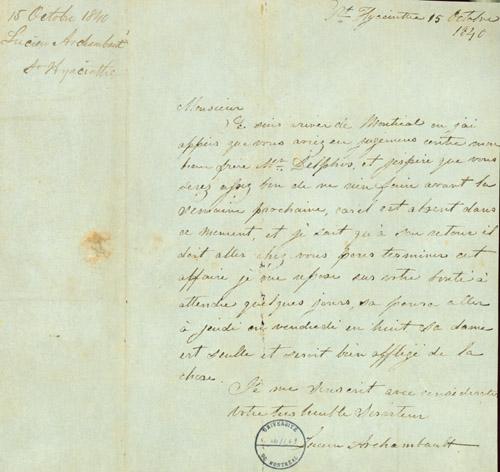 15 Octobre 1840
Lucien Archambault
St Hyacinthe
St. Hyacinthe 15 Octobre
1840
Monsieur
Je suis ariver de Montreal ou j'ai
appris que vous aviez eu jugement contre mon
beau frère Mr. Delphis, et j'espère que vous
serez assez bon de ne rien faire avant la
semaine prochaine, car il est absent dans
ce moment, et je sait qu'à son retour il
doit aller chez vous pour terminer cet
affaire je me repose sur votre bonté à
attendre quelques jours, sa poura aller
à jeudi ou vendredi en huit sa dame
est seulle et seroit bien affligé de la
chose.
Je me souscrit avec considération
Votre très humble Serviteur
Lucien Archambault
UNIVERSITÉ
DE MONTRÉAL